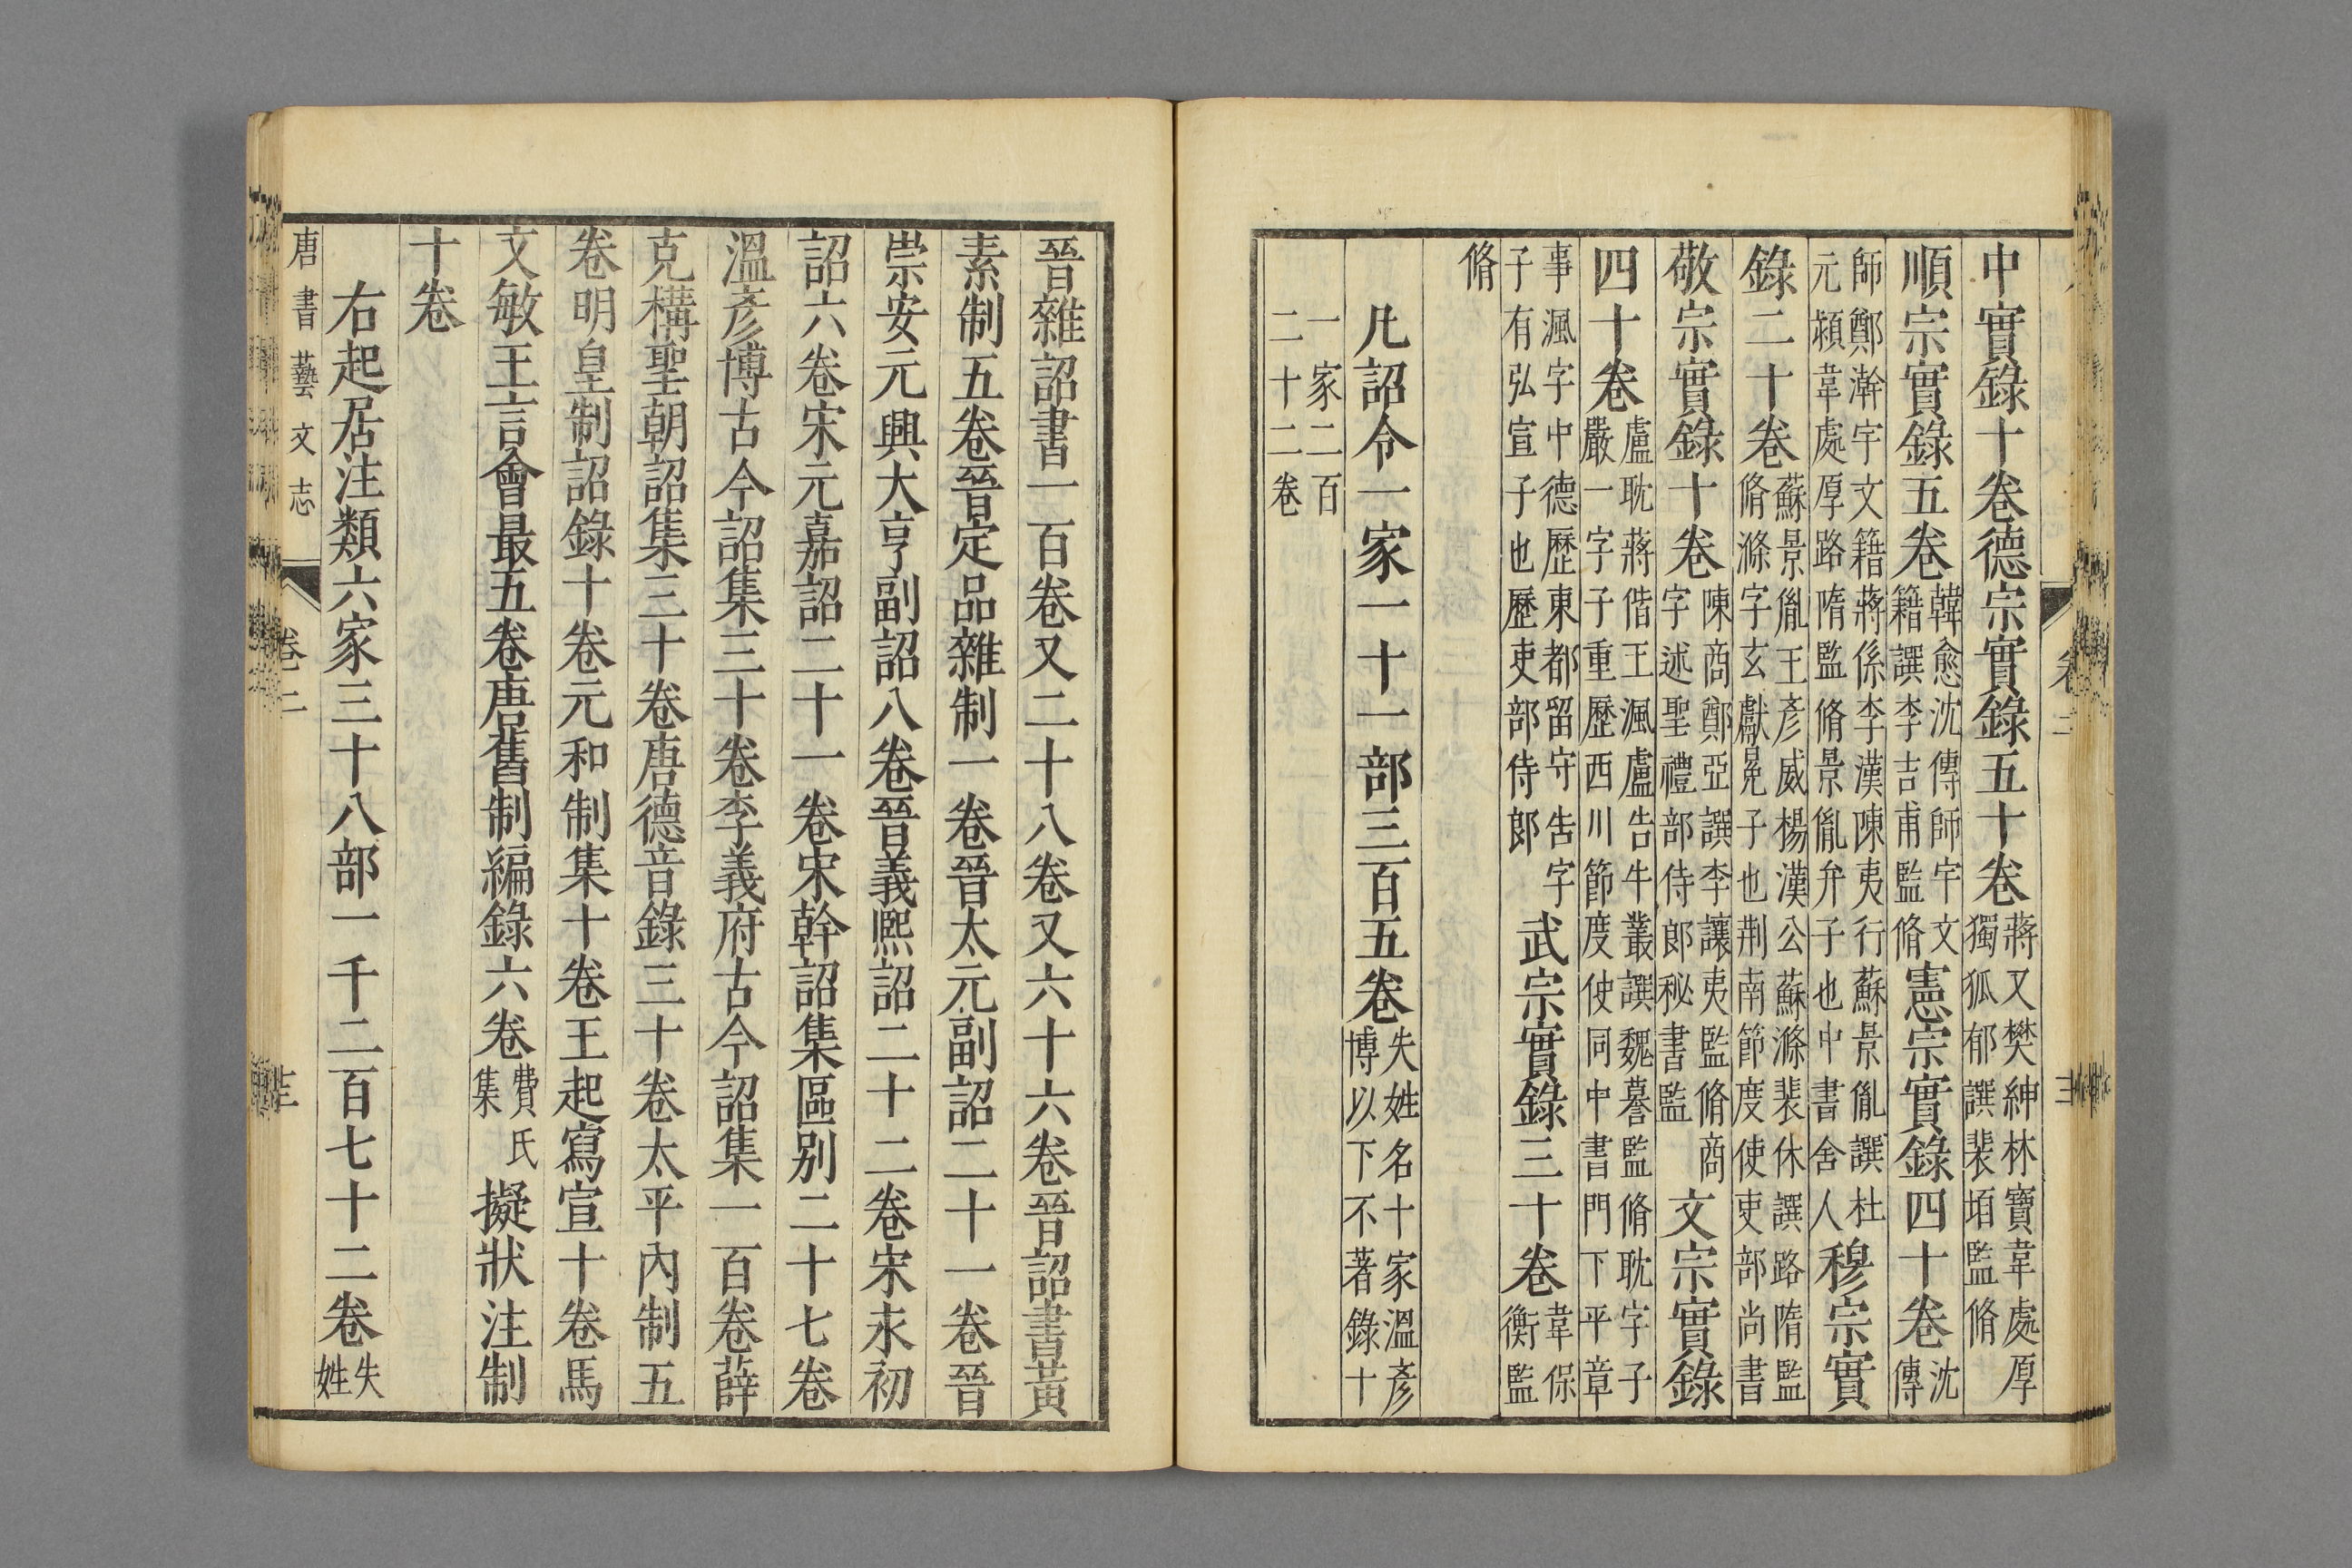 中實錄十卷德宗實錄五十卷蔣又樊紳林寶韋處厚獨狐郁譔裴垍監脩
順宗實錄五卷韓愈沈傳師宇文籍譔李吉甫監脩憲宗實錄四十卷沈傳
師鄭澣宇文籍蔣係李漢陳夷行蘇景胤譔杜元穎韋處厚路隋監脩景胤弁子也中書舍人穆宗實
錄二十卷蘇景胤王彥威楊漢公蘇滌裴休譔路隋監脩滌字玄獻冕子也荆南節度使吏部尚書
敬宗實錄十卷陳商鄭亞譔李讓夷監脩商字述聖禮部侍郎秘書監文宗實錄
四十卷盧耽蔣偕王渢盧告牛叢譔魏謩監脩耽字子嚴一字子重歷西川節度使同中書門下平章
事渢字中德歷東都留守告字子有弘宣子也歷吏部侍郎武宗實錄三十卷韋保衡監
脩
凡詔令一家一十一部三百五卷失姓名十家溫彥博以下不著錄十
一家二百二十二卷
晉雜詔書一百卷又二十八卷又六十六卷晉詔書黃
素制五卷晉定品雜制一卷晉太元副詔二十一卷晉
崇安元興大亨副詔八卷晉義熙詔二十二卷宋永初
詔六卷宋元嘉詔二十一卷宋幹詔集區別二十七卷
溫彥博古今詔集三十卷李義府古今詔集一百卷薛
克構聖朝詔集三十卷唐德音錄三十卷太平內制五
卷明皇制詔錄十卷元和制集十卷王起寫宣十卷馬
文敏王言會最五卷唐舊制編錄六卷費氏集擬狀注制
十卷
右起居注類六家三十八部一千二百七十二卷失姓
唐書藝文志 卷二